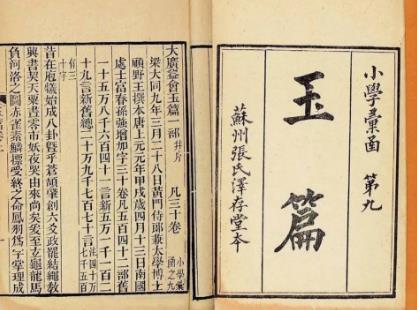 小學彙函 第九
玉篇
蘇州張氏澤存堂本
大廣益會玉篇一部并序 凡三十卷 小學彙函之九
梁大同九年三月二十八日黃門侍郎兼太學博士
顧野王撰本唐上元元年甲戌歲四月十三日南國
處士富春孫強增加字三十卷凡五百四十二部舊
一十五萬八千六百四十一言新五萬一千一百二
十九言新舊總二十萬九千七百七十言注四十萬七千五百
有三十字
昔在庖犧始成八卦暨乎蒼頡肇創六爻政罷結繩教
興書契天粟晝零市妖夜哭由來尚矣爰至玄龜龍馬
負河洛之圖赤雀素鱗標受終之命鳳羽為字掌理成